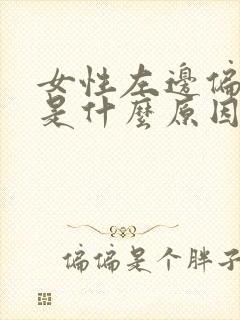 女性左邊偏
是什麼原因
偏偏是个胖子